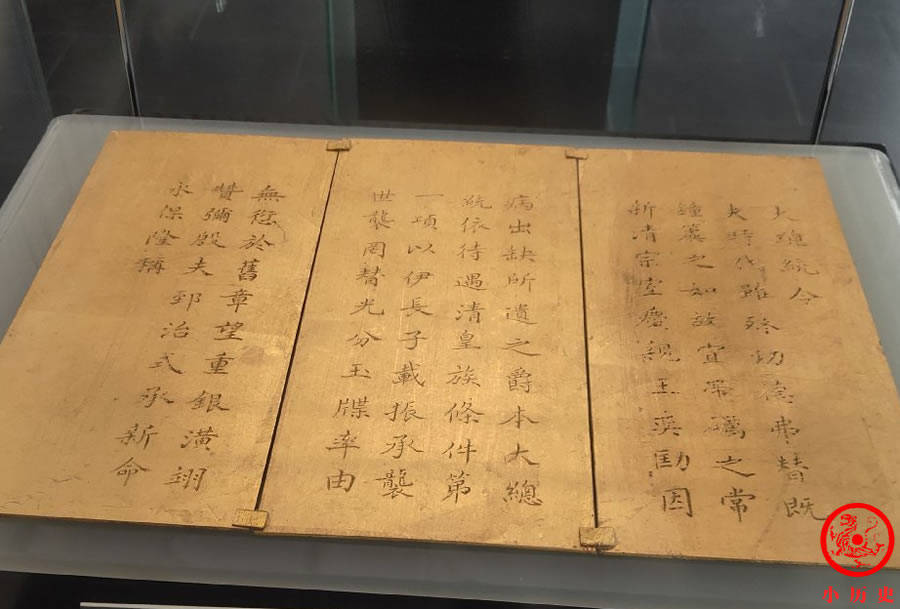 大總統令
夫時代雖殊功德弗替既
鐘簴之如故宜帶礪之常
新清宗室慶親王奕劻因
病出缺所遺之爵本大總
統依待遇清皇族條件第
一項以伊長子載振承襲
世襲罔替光分玉牒率由
無愆於舊章望重銀潢翊
贊彌殷夫郅治式承新命
永保隆稱
小历史